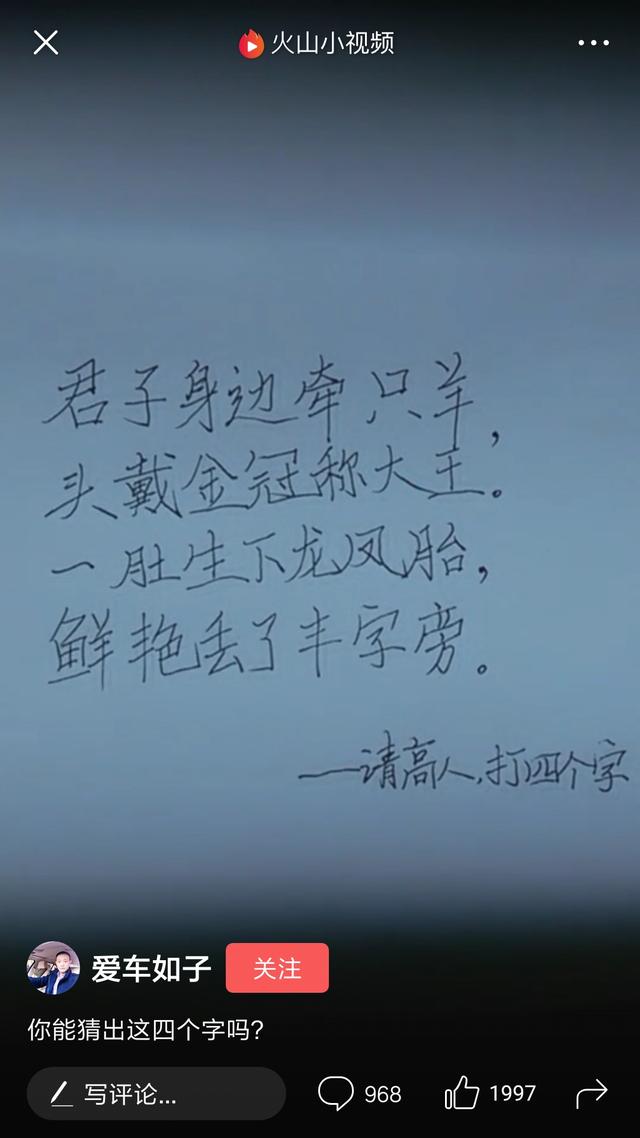 火山小视频
君子身边牵只羊，
头戴金冠称大王。
一肚生下龙凤胎，
鲜艳丢了丰字旁。
——请高人，打四个字
爱车如子
关注
你能猜出这四个字吗？
写评论...
968
1997